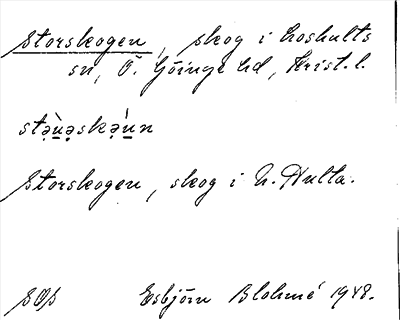 Storskogen, skog i Loshults
sn, Ö. Göinge hd, Krist. l.
stə̣̀u̲ə̣skə̣́u̲n
Storskogen, skog i N. Hulta.
SOS Esbjörn Blohmé 1948.